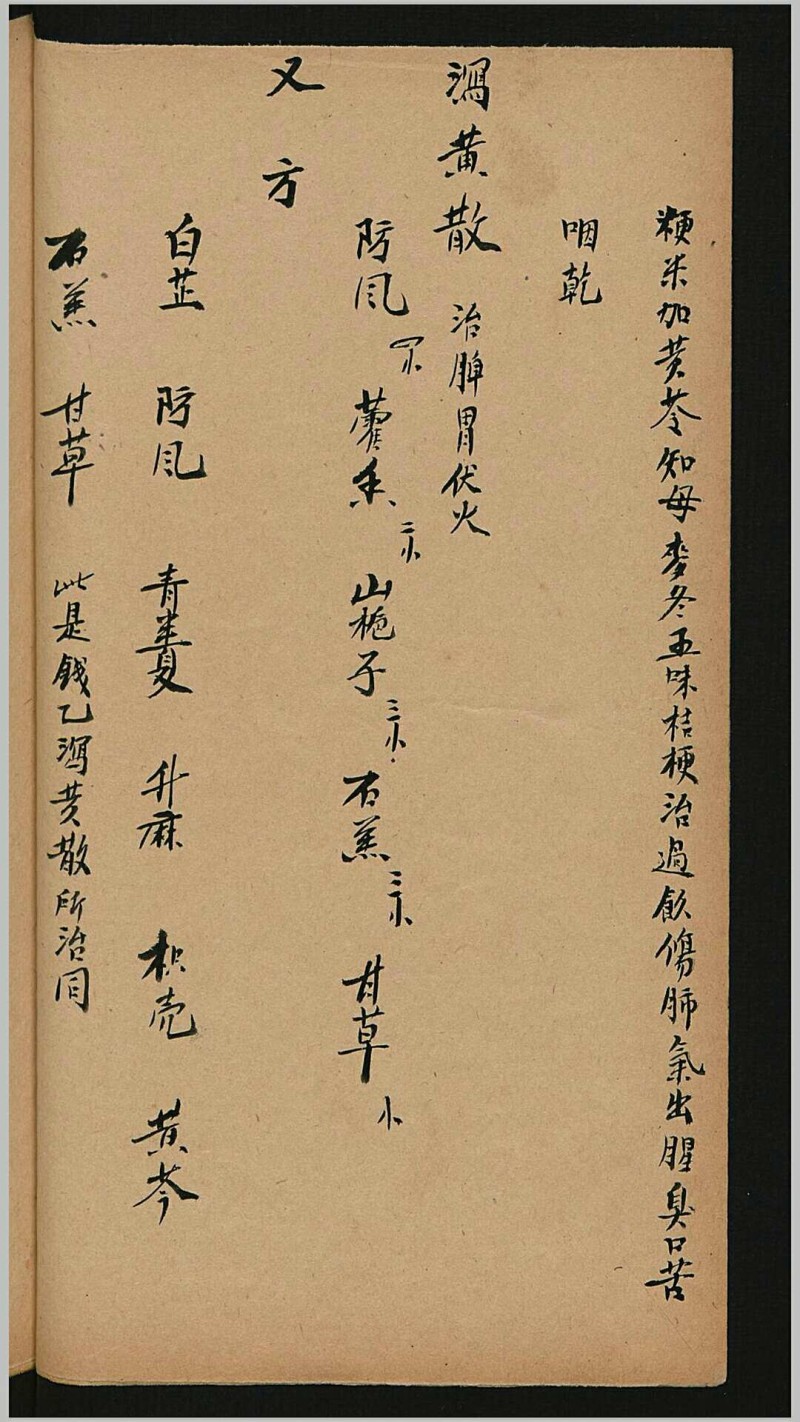 粳米加黄芩知母麥冬五味桔梗治過飲傷肺氣出腥臭口苦
咽乾
瀉黄散 治脾胃伏火
防風 藿香 山梔子 石羔 甘草
又方
白芷 防風 青半夏 升麻 枳壳 黄芩
石羔 甘草 此是錢乙瀉黄散所治同